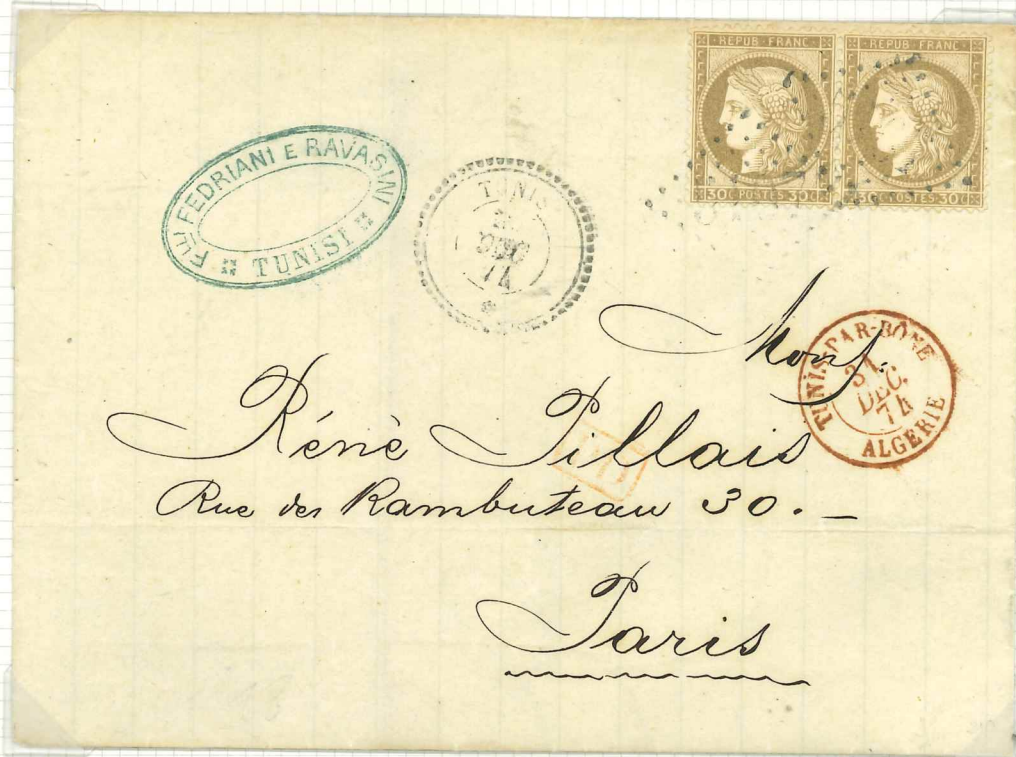 REPUB·FRANC·
30C·POSTES·30C
REPUB·FRANC·
POSTES·30C
Flli FEDRIANI E RAVASINI
TUNISI
TUNIS
DÉC
74
TUNIS·PAR-BÔNE
31
DÉC.
74
ALGERIE
Mons.
Réné Pillais
Rue des Rambuteau 30.—
Paris